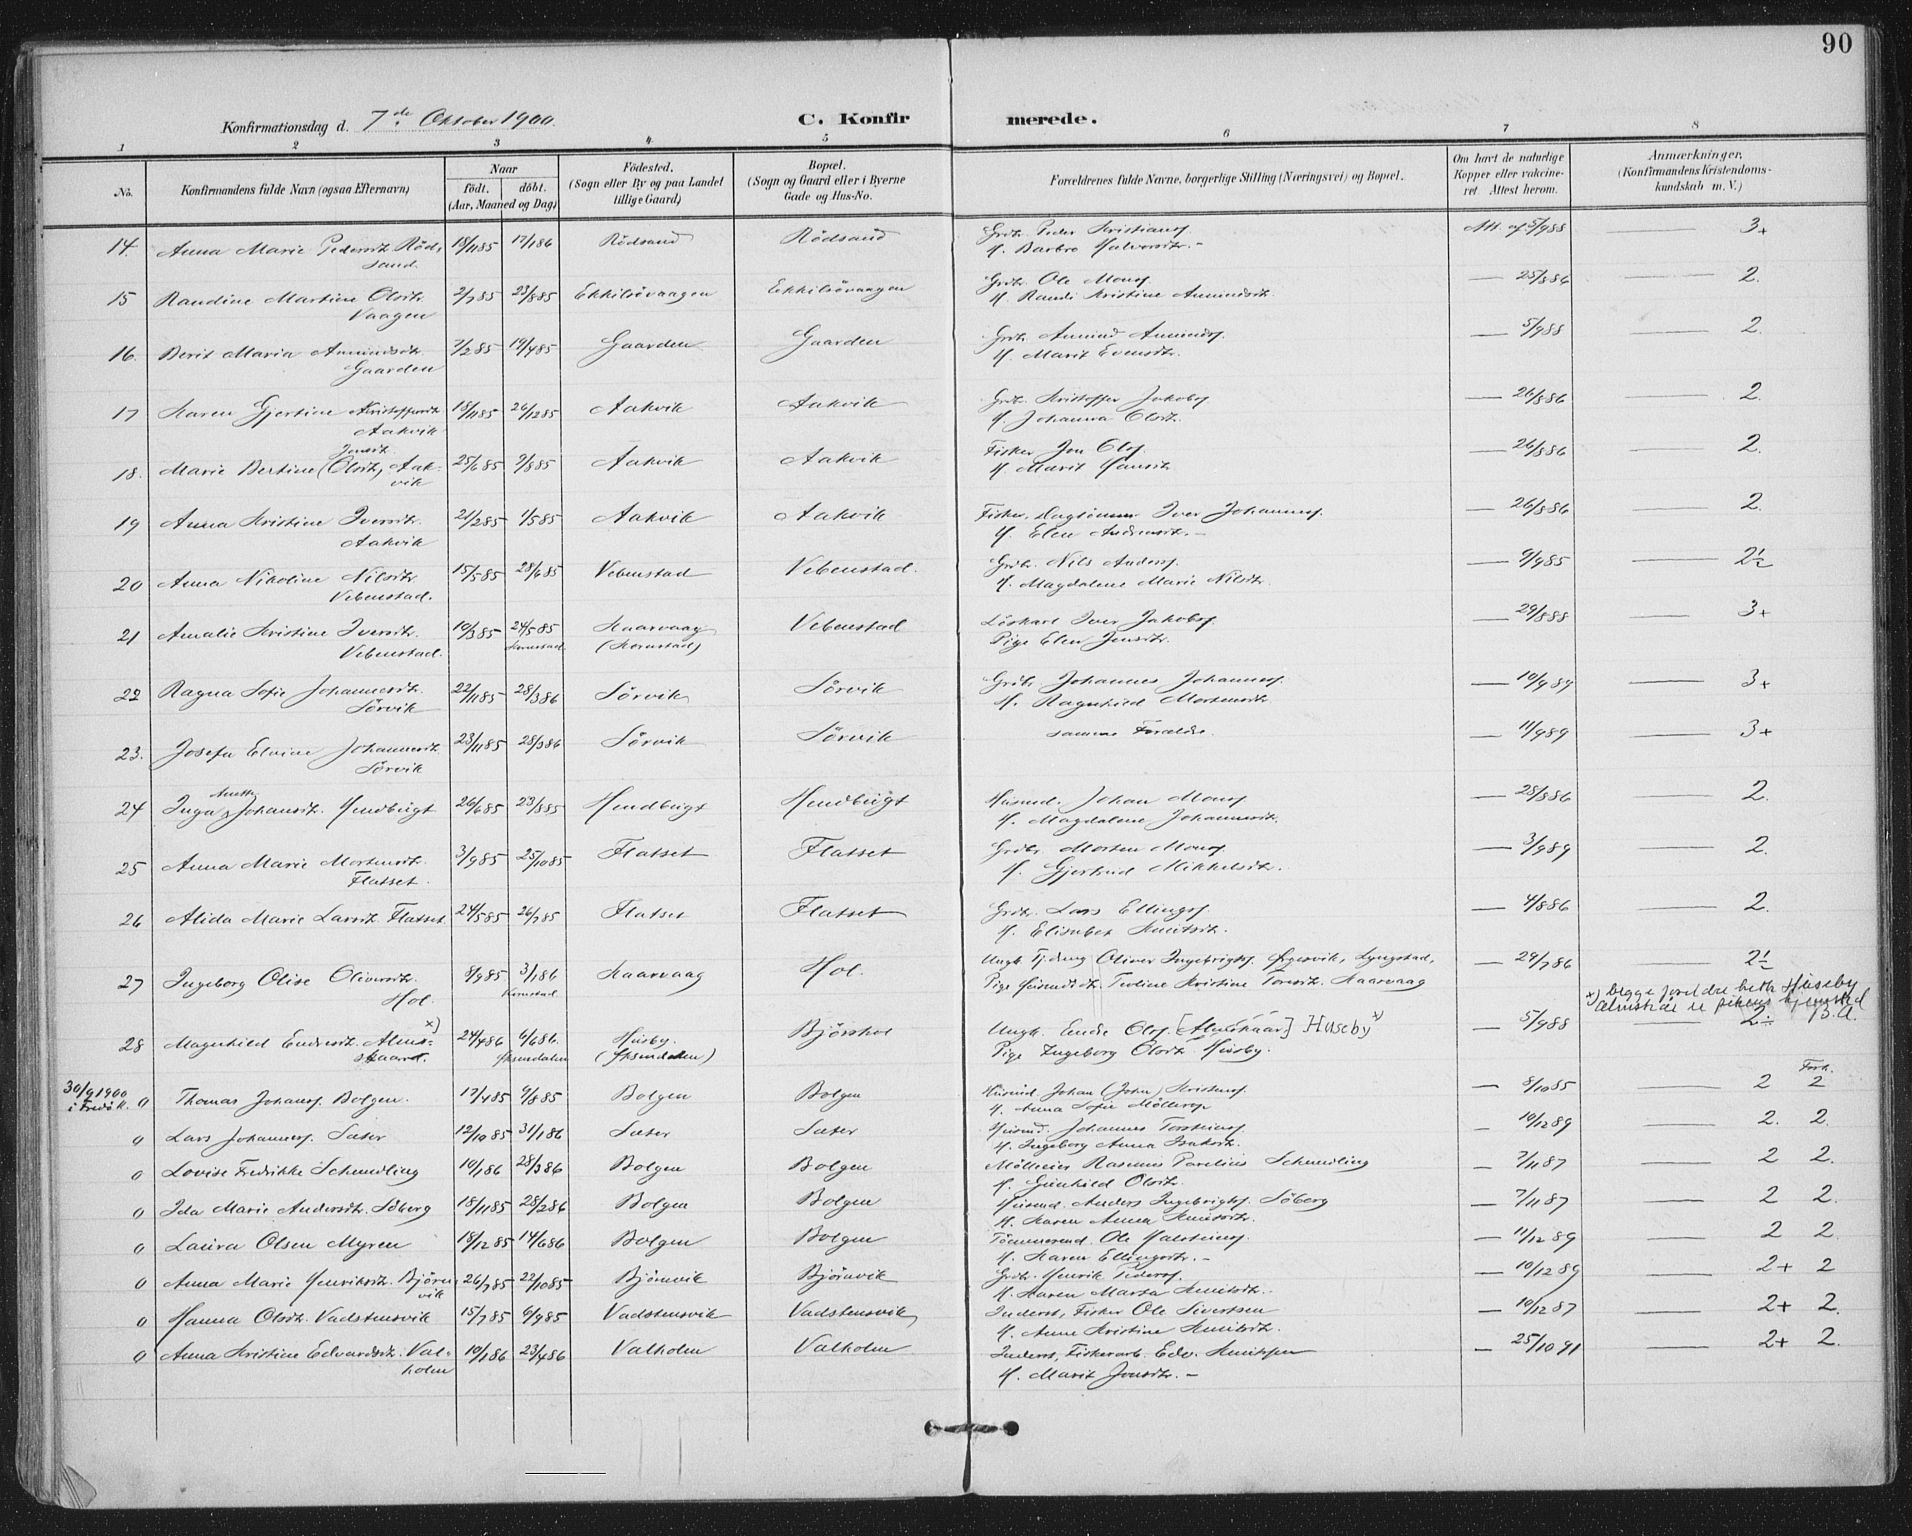 90
Konfirmationsdag d. 7de Oktober 1900. C. Konfirmerede.
1 2 3 4 5 6 7 8
No. Konfirmandens fulde Navn (ogsaa Efternavn) Naar födt. döbt. (Aar, Maaned og Dag) Födested. (Sogn eller By og paa Landet tillige Gaard) Bopæl. (Sogn og Gaard eller i Byerne Gade og Hus-No. Forældrenes fulde Navne, borgerlige Stilling (Næringsvei) og Bopæl. Om havt de naturlige Kopper eller vakcineret. Attest herom. Anmærkninger, (Konfirmandens Kristendomskundskab m. V.)
14. Anna Marie Pedersdtr. Röd- 18/11 85 17/1 86 Rödsand Rödsand Grdbr. Peder Kristians. Att. af 5/9 88 — 3+
sand. H. Barbro Halvorsdtr. -
15 Randine Martine Olsdtr. 2/7 85 23/8 85 Ekkilsövaagen Ekkilsövaagen Grdbr. Ole Mons. — 25/8 86 — 2.
Vaagen H. Randi Kristine Amundsdtr.
16. Berit Maria Amundsdtr. 7/2 85 19/4 85 Gaarden Gaarden Grdbr. Amund Amunds. — 5/9 88 — 2
Gaarden H. Marit Evensdtr.
17 Karen Gjertine Kristoffersdtr. 18/11 85 26/12 85 Aakvik Aakvik Grdbr. Kristoffer Jakobs. — 26/8 86 — 2.
Aakvik H. Johanna Olsdtr.
Jonsdtr.
18. Marie Bertine (Olsdtr.) Aak- 25/6 85 9/8 85 Aakvik Aakvik Fisker Jon Ols. — 26/8 86 — 2.
vik H. Marit Hansdtr.
19 Anna Kristine Iversdtr. 21/2 85 1/5 85 Aakvik Aakvik Fisker, Iver Johannes. — 26/8 86 — 2.
Aakvik H. Elen Andersdtr. -
20 Anna Nikoline Nilsdtr. 15/5 85 28/6 85 Vebenstad Vebenstad. Grdbr. Nils Anders. — 9/9 85 — 2½
Vebenstad. H. Magdalene Marie Nilsdtr.
21 Amalie Kristine Iversdtr. 10/3 85 24/5 85 Kaarvaag Vebenstad Löskarl Iver Jakobs. — 29/8 88 — 3+
Vebenstad. Kornstad. (Kornstad) Pige Elen Jensdtr.
22 Ragna Sofie Johannesdtr. 22/11 85 28/3 86 Sörvik Sörvik Grdbr. Johannes Johannes. — 10/9 89 — 3+
Sörvik H. Ragnhild Mortensdtr.
23. Josefa Elvine Johannesdtr. 23/11 85 28/3 86 Sörvik Sörvik samme Foræld. — 11/9 89 — 3+
Sörvik
Anette
24 Inga Johansdtr. Hendbugt 26/6 85 23/8 85 Hendbugt Hendbugt Husmd. Johan Mons. — 28/8 86 — 2.
H. Magdalene Johannesdtr.
25 Anna Marie Mortensdtr. 3/9 85 25/10 85 Flatset Flatset Grdbr. Morten Mons. — 3/9 89 — 2
Flatset. H. Gjertrud Mikkelsdtr.
26 Alida Marie Larsdtr. Flatset 24/5 85 26/7 85 Flatset Flatset Grdbr. Lars Ellings. — 4/8 86 — 2.
H. Elisabet Knutsdtr.
27 Ingeborg Olise Oliversdtr. 8/9 85 3/1 86 Kaarvaag Hol. Ungk. Tjdreng Oliver Ingebrigts. Lyngstad, — 29/7 86 — 2½
Hol. Kornstad Pige Kristine Toresdtr. Kaarvaag
x) begge foreldre hette Huseby
Almskår er pikens hjemsted
28 Magnhild Endresdtr. Alms- x) 24/4 86 6/6 86. Husby. Björshol Ungk. Endre Ols. [Almskaar] Huseby x) — 5/9 88 — 2÷ B.A.
skaaret. Öksendalen (Öksendalen) Pige Ingeborg Olsdtr. Husby.
30/9 1900 i Fredö k. Forh.
0 Thomas Johans. Bolgen. 17/4 85 9/8 85 Bolgen Bolgen Husmd. Johan (John) Kristens. — 8/10 85 2 2
H. Anna Sofie Möllerop
0 Lars Johannes. Sæter 12/10 85 31/1 86 Sæter Sæter Husmd. Johannes Torsteins. — 10/12 89 — 2. 2.
H. Ingeborg Anna Isaksdtr.
0 Lovise Fredrikke Schmeding 10/1 86 28/3 86 Bolgen Bolgen Rasmus Schmeding — 7/11 87 — 2 2.
H. Gunhild Olsdtr.
0 Ida Marie Andersdtr. Söberg 18/11 85 28/2 86 Bolgen Bolgen Husmd. Anders Ingebrigts. Söberg — 7/11 87 — 2 2.
H. Karen Anna Knutsdtr.
0 Laura Olsen Myren 18/12 85 14/6 86 Bolgen Bolgen Tömmermd. Ole Halsteins. — 11/12 89 — 2 2
H. Karen Ellingsdtr. -
0 Anna Marie Henriksdtr. Björn- 26/7 85 22/10 85 Björnvik Björnvik Grdbr. Henrik Peders. — 10/12 89 — 2+ 2
vik H. Karen Marta Knutsdtr.
0 Hanna Olsdtr. Vadstensvik 15/7 85 6/9 85 Vadstensvik Vadstensvik Inderst, Fisker Ole Sivertsen — 10/12 87 — 2+ 2.
H. Anne Kristine Knutsdtr.
0 Anna Kristine Edvardsdtr. Val- 10/1 86 23/4 86 Valholm Valholm Inderst, Fiskerarb. Edv. Knutsen — 25/10 91 — 2+ 2.
holm H. Marit Jonsdtr. -